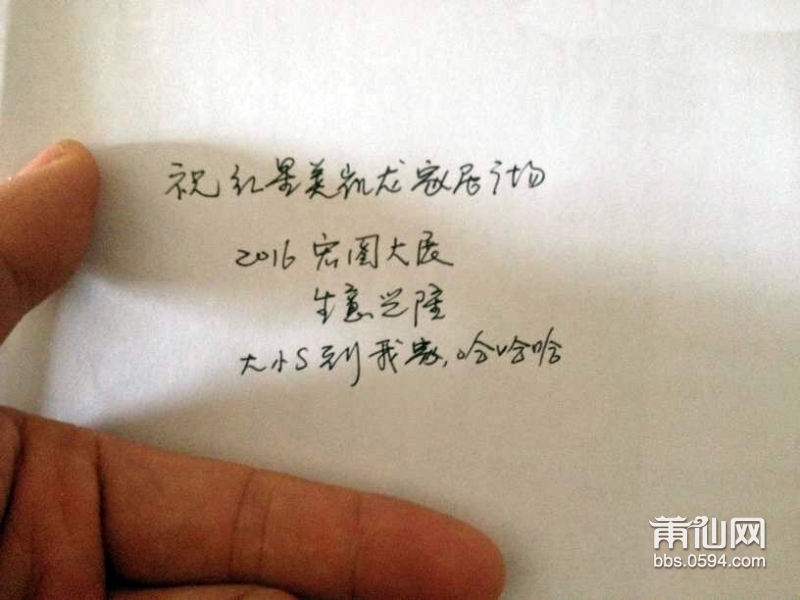 祝红星美凯龙家居广场
2016宏图大展
生意兴隆
大小S到我家,哈哈哈
莆仙网
bbs.0594.com